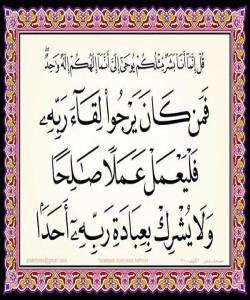 قُلْ إِنَّمَا أَنَا بَشَرٌ مِثْلُكُمْ يُوحَىٰ إِلَيَّ أَنَّمَا إِلَٰهُكُمْ إِلَٰهٌ وَاحِدٌ ۖ
فَمَن كَانَ يَرْجُوا۟ لِقَآءَ رَبِّهِۦ
فَلْيَعْمَلْ عَمَلًا صَالِحًا
وَلَا يُشْرِكْ بِعِبَادَةِ رَبِّهِۦٓ أَحَدًۢا